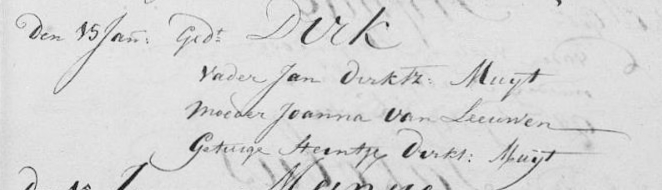 Den 15 Jan: Gedt Dirk
Vader Jan Dirktz: Muyt
Moeder Joanna Van Leeuwen
Getuige Heintje Dirks: Muyt